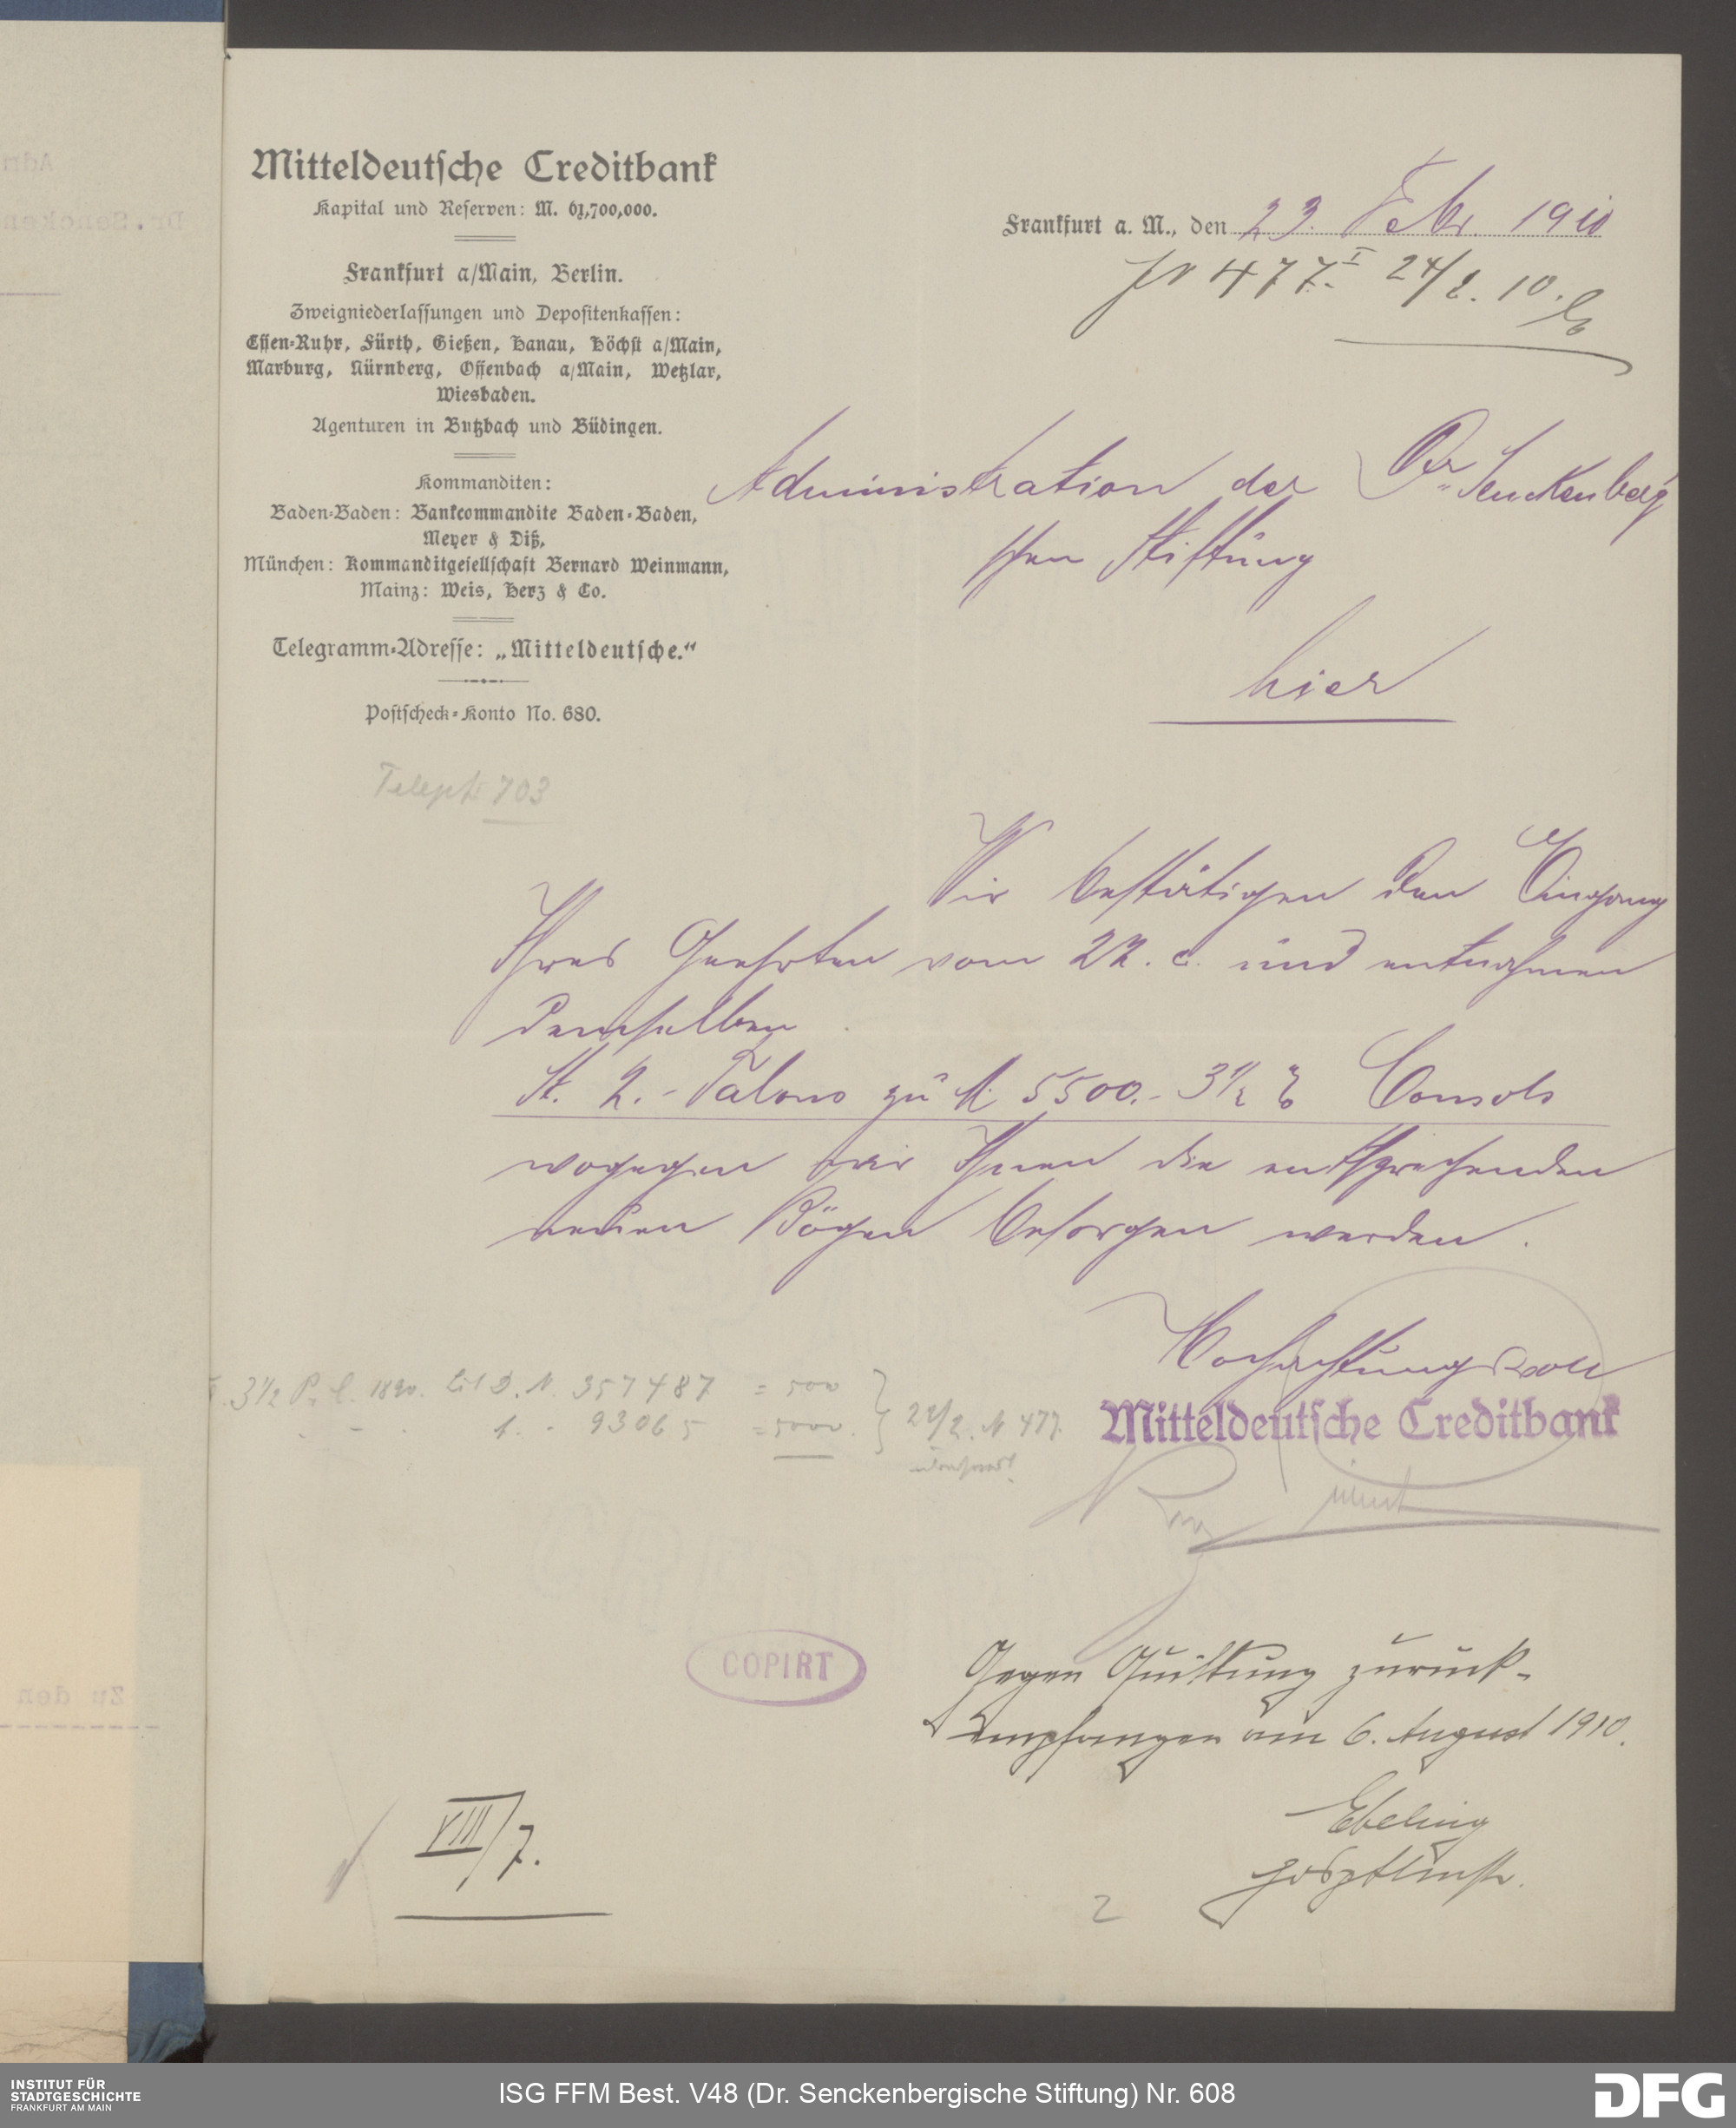 Mitteldeutsche Creditbank
Kapital und Reserven: M. 61,700,000.
Frankfurt a/Main, Berlin.
Zweigniederlassungen und Depositenkassen:
Essen-Ruhr, Fürth, Gießen, Hanau, Höchst a/Main,
Marburg, Nürnberg, Offenbach a/Main, Wetzlar,
Wiesbaden.
Agenturen in Butzbach und Büdingen.
Kommanditen:
Baden-Baden: Bankcommandite Baden-Baden,
Meyer & Diß,
München: Kommanditgesellschaft Bernard Weinmann,
Mainz: Weis, Herz & Co.
Telegramm-Adresse: „Mitteldeutsche."
Postscheck-Konto No. 680.
Teleph. 703
Frankfurt a. M., den 23. Febr. 1910
477 I 24/2. 10.
Administration der Dr Senckenberg
schen Stiftung
hier
Wir bestätigen den Eingang
Ihres Geehrten vom 22. c. und entnahmen
demselben
St. 2.- Talons zu M 5500.- 3½ % Consols
wogegen wir Ihnen die entsprechenden
neuen Bögen besorgen werden.
Hochachtungsvoll
Mitteldeutsche Creditbank
3½ P. C. 1890. Lit D. N. 357487 = 500
93065 = 5000.
22/2. N 477.
COPIRT
Gegen Quittung zurück-
empfangen am 6. August 1910.
Ebeling
VIII/7.
2
Zu den
Dr. Sencken
INSTITUT FÜR
STADTGESCHICHTE
FRANKFURT AM MAIN
ISG FFM Best. V48 (Dr. Senckenbergische Stiftung) Nr. 608
DFG